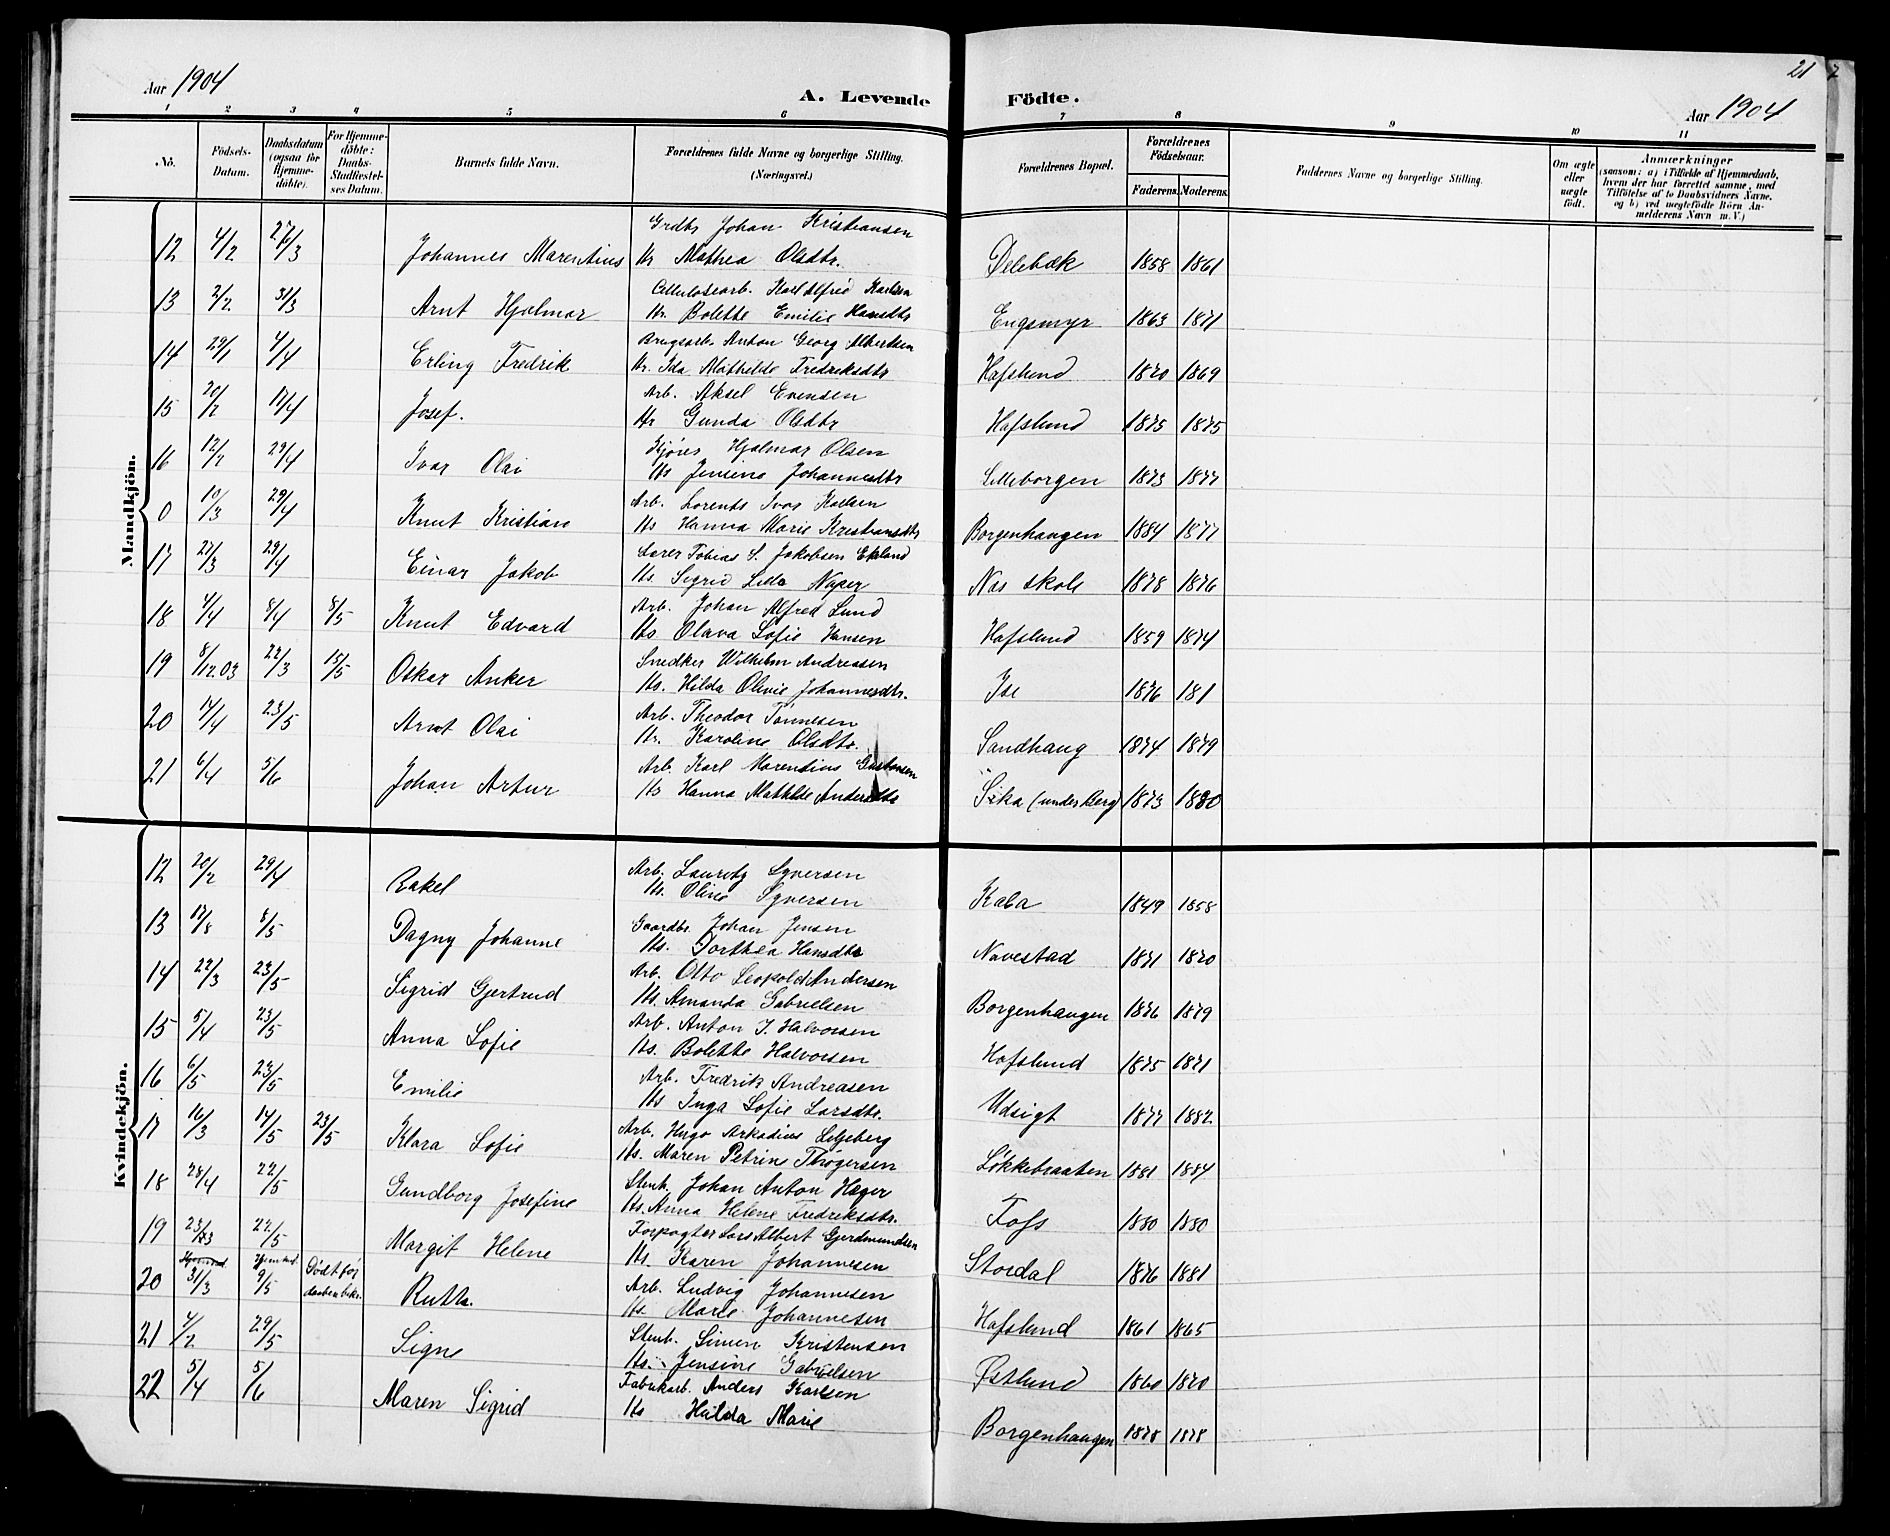 Aar 1904
A. Levende Födte.
21
Aar 1904
1 2 3 4 5 6 7 8 9 10 11
No. Födsels-Datum. Daabsdatum (ogsaa för Hjemme-döbte). For Hjemme-döbte: Daabs-Stadfæstel-ses Datum. Barnets fulde Navn. Forældrenes fulde Navne og borgerlige Stilling. (Næringsvei.) Forældrenes Bopæl. Forældrenes Födselsaar. Faderens. Moderens. Faddernes Navne og borgerlige Stilling. Om ægte eller uægte födt. Anmærkninger (saasom: a) i Tilfælde af Hjemmedaab, hvem der har forrettet samme, med Tilföielse af to Daabsvidners Navne, og b) ved uægtefödte Börn An-melderens Navn m. V.)
Mandkjön.
Grdbr Johan Kristiansen
12 4/2 27/3 Johannes Marentius Hr Mathea Olsdtr. Delebæk 1858 1861
Cellulosearb. Karl Alfred Karlsen
13 2/2 31/3 Arnt Hjalmar Hr. Bolette Emilie Hansdtr Engsmyr 1863 1871
Brugsarb. Anton Georg Albertsen
14 29/1 4/4 Erling Fredrik Hr. Ida Mathilde Fredriksdtr Hafslund 1870 1869
Arb. Aksel Evensen
15 20/2 17/4 Josef. Hr Gunda Olsdtr Hafslund 1875 1875
Hjalmar Olsen
16 12/2 29/4 Ivar Olai Hs Jensine Johannesdtr Lilleborgen 1873 1877
Arb. Lorents Ivar Karlsen
0 10/3 29/4 Knut Kristian Hs Hanna Marie Kristiansdtr Borgenhaugen 1884 1877
Lærer Tobias S. Jakobsen Ekland
17 27/3 29/4 Einar Jakob Hs. Sigrid Lida Naper Næs skole 1878 1876
Arb. Johan Alfred Lund
18 4/4 8/4 8/5 Knut Edvard Hs. Olava Sofie Hansen Hafslund 1859 1874
Snedker Wilhelm Andreasen
19 8/12.03 22/3 15/5 Oskar Anker Hs. Hilda Olivie Johannesdtr. Ise 1876 181
Arb. Theodor Tönnesen
20 14/4 23/5 Arnt Olai Hr. Karoline Olsdtr. Sandhaug 1874 1879
Arb. Karl Marentius Gustavsen
21 6/4 5/6 Johan Artur Hs Hanna Mathilde Andersdtr Sika (under Berg) 1873 1880
Kvindekjön.
Arb. Lauritz Syversen
12 20/2 29/4 Rakel Hs. Oline Syversen Kala 1849 1858
Gaardbr. Johan Jensen
13 17/8 8/5 Dagny Johanne Hs. Dorthea Hansdtr Navestad 1871 1870
Arb. Otto Leopold Andersen
14 22/3 23/5 Sigrid Gjertrud Hs. Amanda Gabrielsen Borgenhaugen 1876 1879
Arb. Anton J. Halvorsen
15 5/4 23/5 Anna Sofie Hs. Bolette Halvorsen Hafslund 1875 1871
Arb. Fredrik Andreasen
16 6/5 23/5 Emilie Hs Inga Sofie Larsdtr. Udsigt 1877 1882
Arb. Hugo Arkadius Liljeberg
17 16/3 14/5 23/5 Klara Sofie Hs. Maren Petrine Thøgersen Løkkebraaten 1881 1884
Stenh. Johan Anton Hæger
18 28/4 22/5 Gundborg Josefine Hs. Anna Helene Fredriksdtr. Fofs 1880 1880
Forpagter Lars Albert Gjerdmundsen
19 23/3 22/5 Margit Helene Hs. Karen Johannesen Stordal 1876 1881
Arb. Ludvig Johannesen
20 31/3 Hjemmed. 9/5 Dödt før daaben bekr. Ruth. Hs Marie Johannesen Hafslund 1861 1865
Stenh. Simen Kristensen
21 4/2 29/5 Signe Hs. Jensine Gabrielsen Østlund 1860 1870
Fabrikarb. Anders Karlsen
22 5/4 5/6 Maren Sigrid Hs Hulda Marie Borgenhaugen 1878 1878